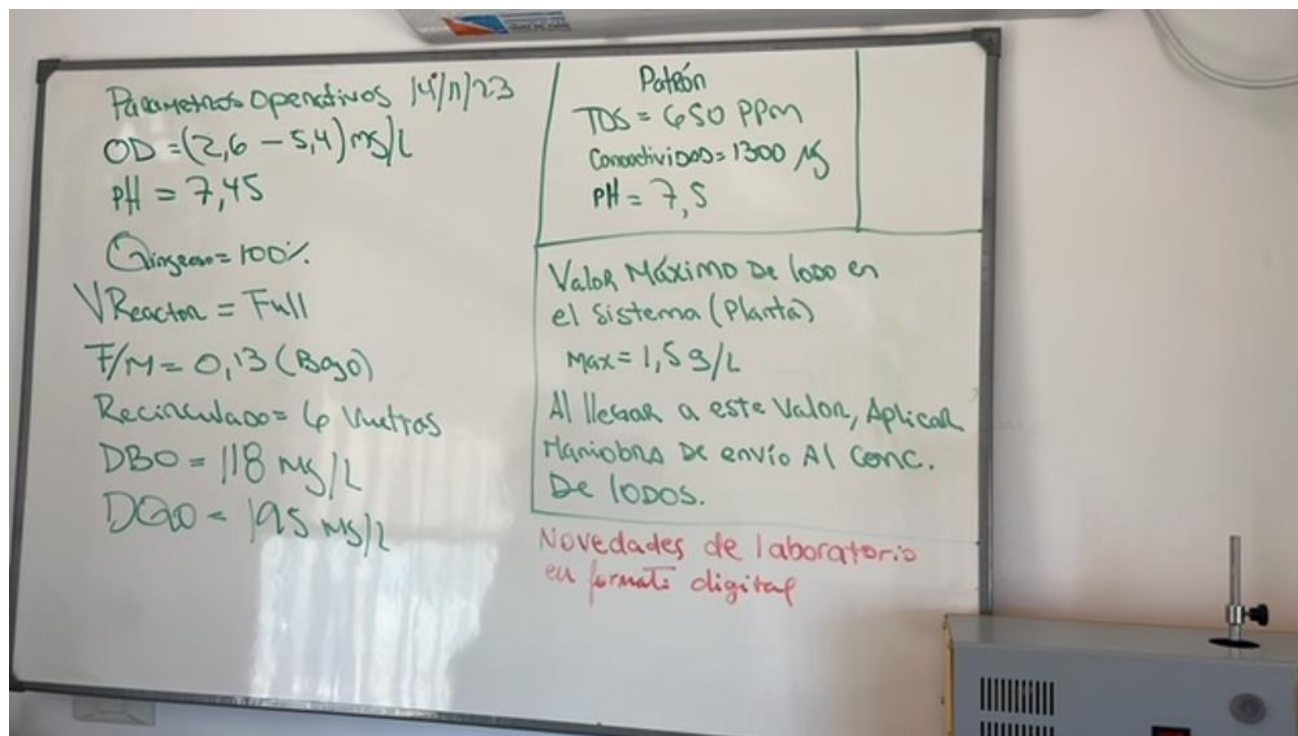 Parametros Operativos 14/11/23
OD = (2,6 - 5,4) mg/L
pH = 7,45
Qingreso = 100%
VReactor = Full
F/M = 0,13 (Bajo)
Recirculado = 6 Vueltas
DBO = 118 mg/L
DQO = 195 mg/L
Patrón
TDS = 650 PPm
Conductividad = 1300 µS
PH = 7,5
Valor Máximo De lodo en
el Sistema (Planta)
Max = 1,5 g/L
Al llegar a este Valor, Aplicar
Maniobra De envío Al Conc.
De lodos.
Novedades de laboratorio
en formato digital